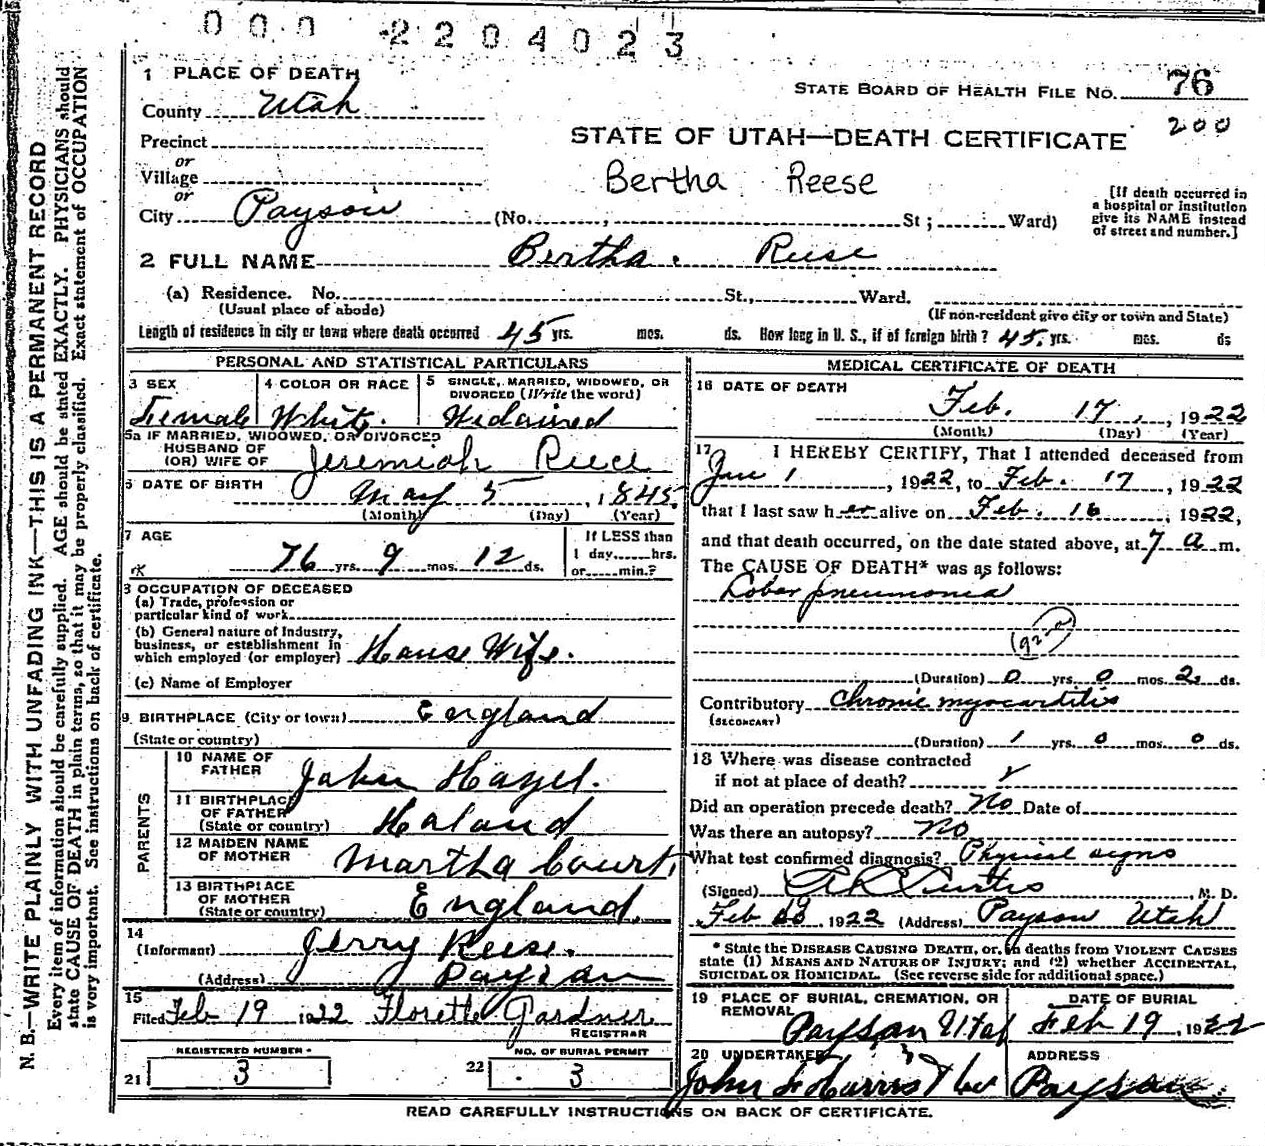 000 2204023
1 PLACE OF DEATH
STATE BOARD OF HEALTH FILE NO. 76
200
County Utah
STATE OF UTAH—DEATH CERTIFICATE
Precinct
or
Village
Bertha Reese
or
City Payson (No. , St; Ward)
[If death occurred in
a hospital or institution
give its NAME instead
of street and number.]
2 FULL NAME Bertha. Reese
(a) Residence. No. St., Ward.
(Usual place of abode)
(If non-resident give city or town and State)
Length of residence in city or town where death occurred 45 yrs. mos. ds. How long in U. S., if of foreign birth? 45. yrs. mos. ds
PERSONAL AND STATISTICAL PARTICULARS
3 SEX
Female
4 COLOR OR RACE
White.
5 SINGLE, MARRIED, WIDOWED, OR
DIVORCED (Write the word)
Widowed
5a IF MARRIED, WIDOWED, OR DIVORCED
HUSBAND OF
(OR) WIFE OF Jeremiah Reece
6 DATE OF BIRTH May 5 , 1845
(Month) (Day) (Year)
7 AGE
76 yrs. 9 mos. 12 ds.
If LESS than
1 day,......hrs.
or......min.?
8 OCCUPATION OF DECEASED
(a) Trade, profession or
particular kind of work
(b) General nature of Industry,
business, or establishment in
which employed (or employer) House Wife.
(c) Name of Employer
9 BIRTHPLACE (City or town) England
(State or country)
PARENTS
10 NAME OF
FATHER John Hazel.
11 BIRTHPLACE
OF FATHER
(State or country)
12 MAIDEN NAME
OF MOTHER Martha Court.
13 BIRTHPLACE
OF MOTHER
(State or country) England.
14
(Informant) Jerry Reese.
(Address) Payson
15
Filed Feb 19 1922 Florette Gardner
REGISTRAR
REGISTERED NUMBER
21 3
NO. OF BURIAL PERMIT
22 3
MEDICAL CERTIFICATE OF DEATH
16 DATE OF DEATH
Feb. 17, , 1922
(Month) (Day) (Year)
17 I HEREBY CERTIFY, That I attended deceased from
Jan 1 , 1922, to Feb. 17 , 1922
that I last saw her alive on Feb. 16 , 1922,
and that death occurred, on the date stated above, at 7 a m.
The CAUSE OF DEATH* was as follows:
Lobar pneumonia
(Duration) 0 yrs. 0 mos. 2 ds.
Contributory Chronic myocarditis
(SECONDARY)
(Duration) 1 yrs. 0 mos. 0 ds.
18 Where was disease contracted
if not at place of death?
Did an operation precede death? No Date of
Was there an autopsy? No
What test confirmed diagnosis? Physical signs
(Signed) Curtis , M. D.
Feb 1922 (Address) Payson Utah
* State the DISEASE CAUSING DEATH, or, in deaths from VIOLENT CAUSES
state (1) MEANS AND NATURE OF INJURY; and (2) whether ACCIDENTAL,
SUICIDAL OR HOMICIDAL. (See reverse side for additional space.)
19 PLACE OF BURIAL, CREMATION, OR
REMOVAL
Payson Utah
DATE OF BURIAL
Feb 19 , 1922
20 UNDERTAKER
John Harris
ADDRESS
Payson
READ CAREFULLY INSTRUCTIONS ON BACK OF CERTIFICATE.
N. B.—WRITE PLAINLY WITH UNFADING INK—THIS IS A PERMANENT RECORD
Every item of information should be carefully supplied. AGE should be stated EXACTLY. PHYSICIANS should
state CAUSE OF DEATH in plain terms, so that it may be properly classified. Exact statement of OCCUPATION
is very important. See instructions on back of certificate.